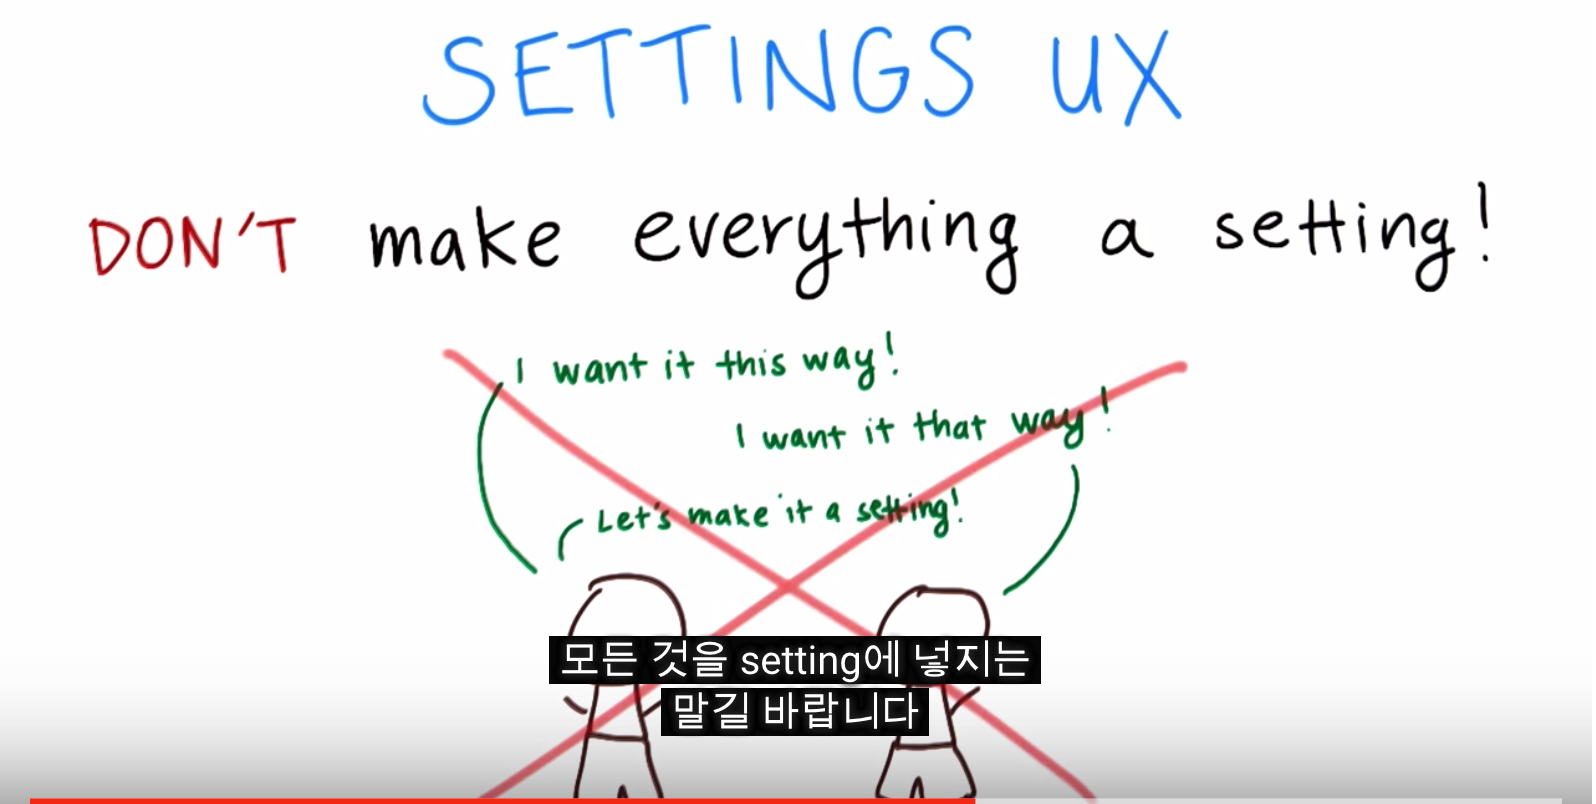 SETTINGS UX
DON'T make everything a setting!
I want it this way!
I want it that way!
Let's make it a setting!
모든 것을 setting에 넣지는
말길 바랍니다